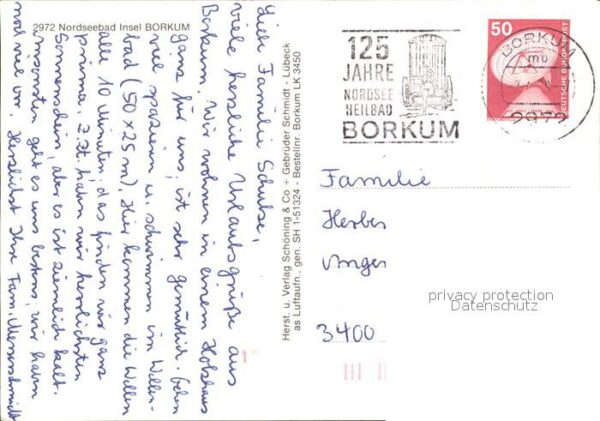 2972 Nordseebad Insel BORKUM
Liebe Familie Schulze,
viele herzliche Urlaubsgrüße aus
Borkum. Wir wohnen in einem Holzhaus
ganz für uns, ist sehr gemütlich. Gehen
viel spazieren u. schwimmen im Wellen-
bad (50 x 25 m). Hier kommen die Wellen
alle 10 Minuten; das finden wir ganz
prima. Z. Zt. haben wir herrlichsten
Sonnenschein, aber es ist ziemlich kalt.
Ansonsten geht es uns bestens, wir haben
noch viel vor. Herzlichst Ihre Fam. Messerschmidt
Herst. u. Verlag Schöning & Co + Gebrüder Schmidt - Lübeck
as Luftaufn., gen. SH 1-51324 - Bestellnr. Borkum LK 3450
125
JAHRE
NORDSEE
HEILBAD
BORKUM
BORKUM
mb
2972
50
DEUTSCHE BUNDESPOST
Familie
Herbe
Anger
3400
privacy protection
Datenschutz
1